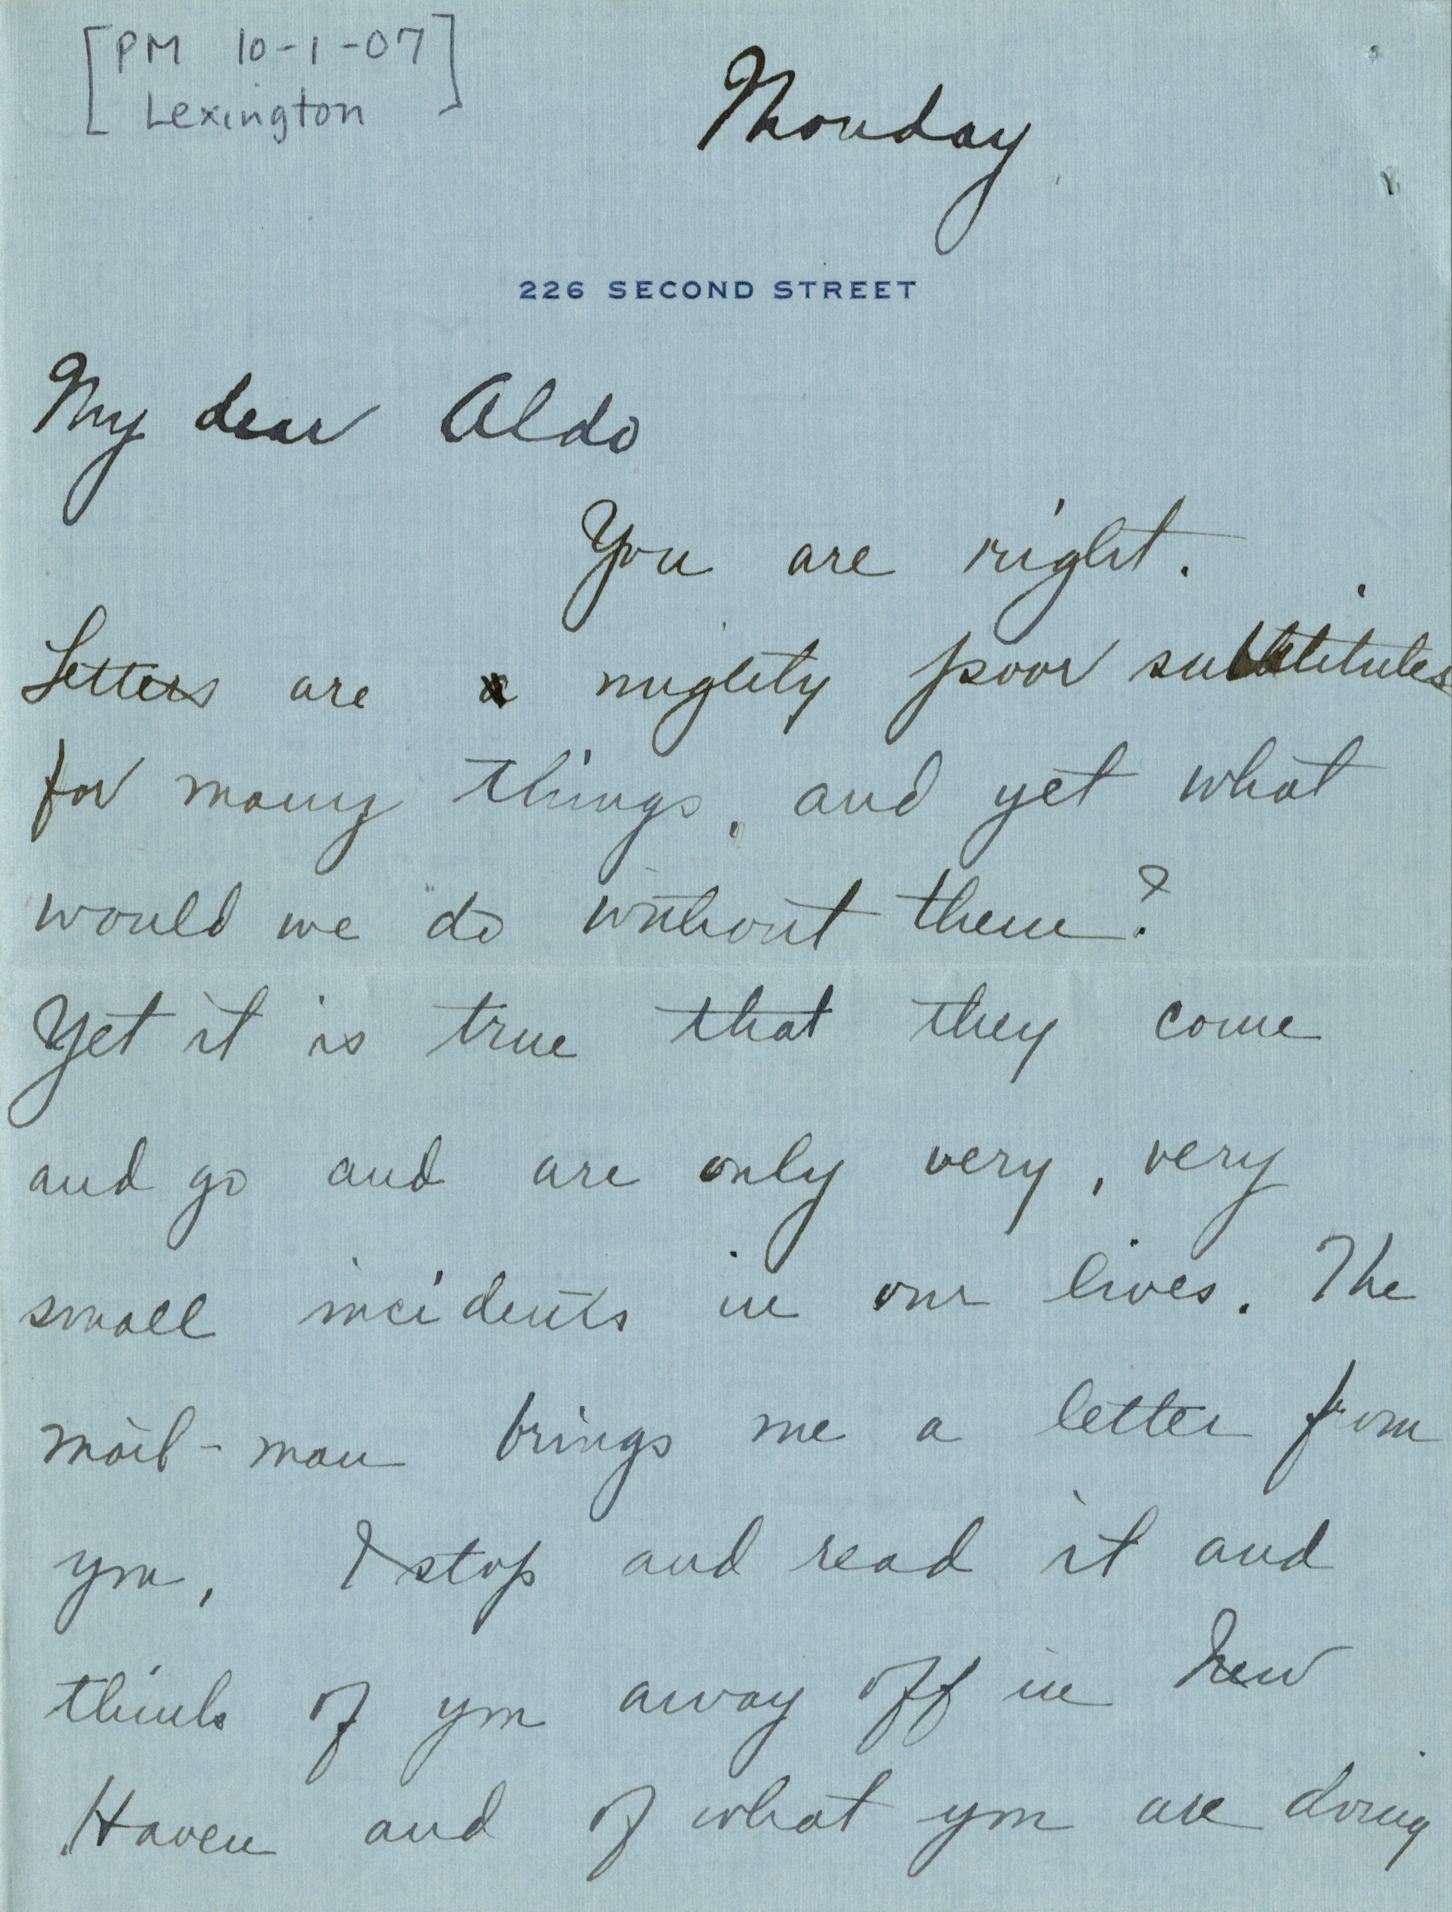 [PM 10-1-07]
Lexington
Monday
226 SECOND STREET
My dear Aldo
You are right.
Letters are a mighty poor substitutes
for many things, and yet what
would we do without them?
Yet it is true that they come
and go and are only very, very
small incidents in our lives. The
mail-man brings me a letter from
you, I stop and read it and
think of you away off in New
Haven and of what you are doing